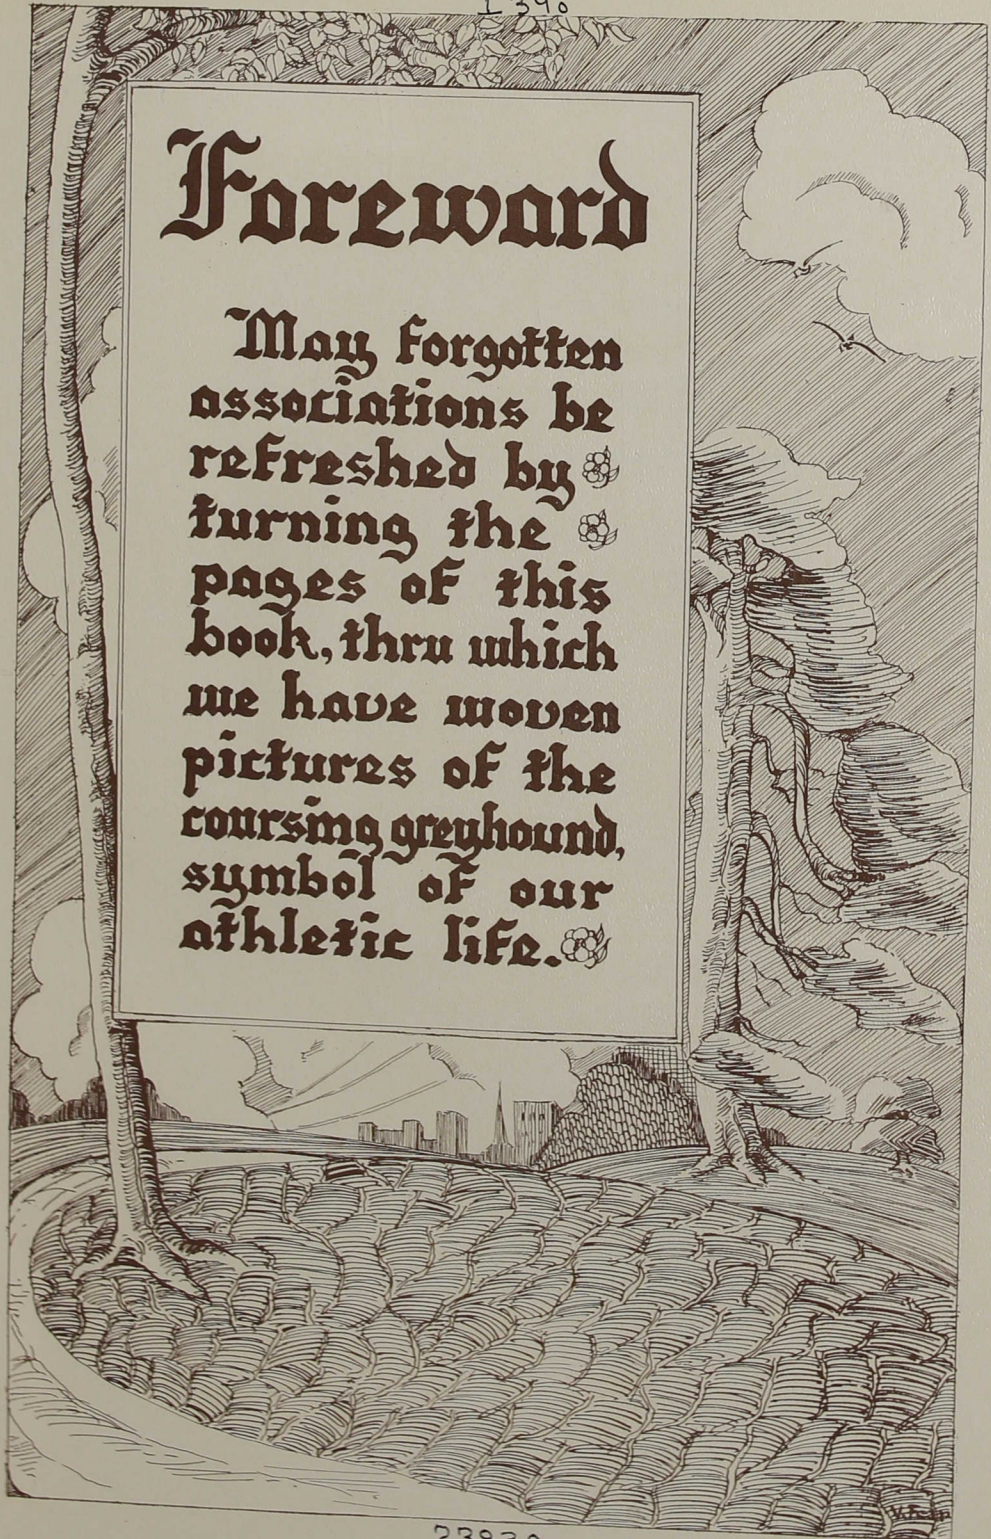 1390
Foreward
May forgotten
associations be
refreshed by
turning the
pages of this
book, thru which
we have woven
pictures of the
coursing greyhound,
symbol of our
athletic life.